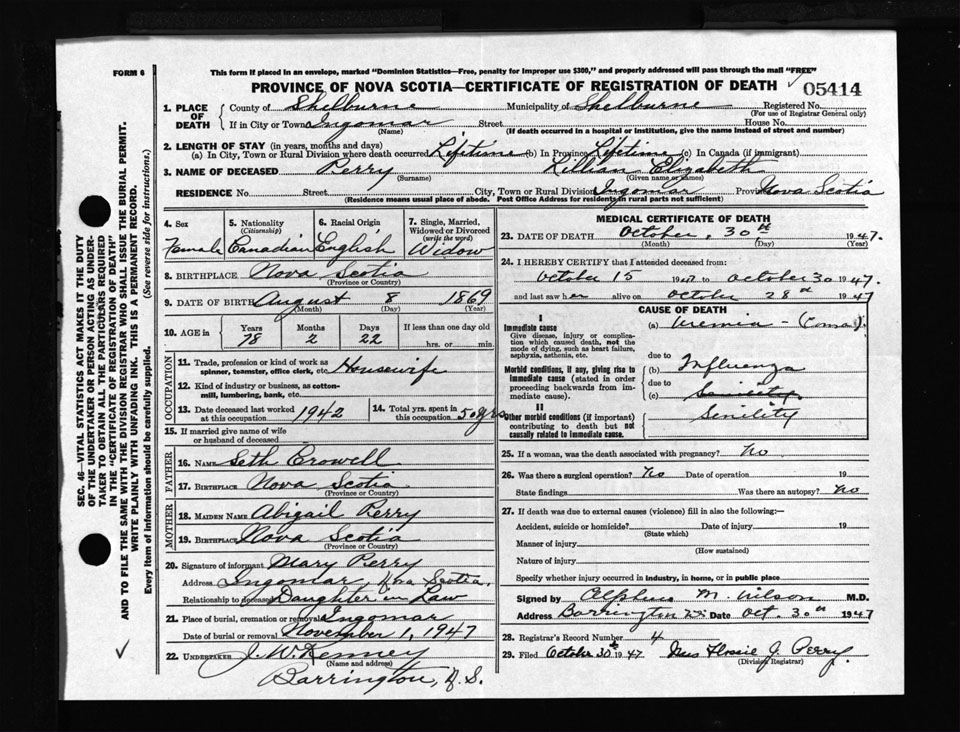 FORM 6
This form if placed in an envelope, marked "Dominion Statistics—Free, penalty for improper use $300," and properly addressed will pass through the mail "FREE"
PROVINCE OF NOVA SCOTIA—CERTIFICATE OF REGISTRATION OF DEATH
05414
1. PLACE OF DEATH
County of Shelburne Municipality of Shelburne Registered No.
(For use of Registrar General only)
If in City or Town Ingomar Street House No.
(Name) (If death occurred in a hospital or institution, give the name instead of street and number)
2. LENGTH OF STAY (in years, months and days)
(a) In City, Town or Rural Division where death occurred Lifetime (b) In Province Lifetime (c) In Canada (if immigrant)
3. NAME OF DECEASED Perry Lillian Elizabeth
(Surname) (Given name or names)
RESIDENCE No. Street City, Town or Rural Division Ingomar Province Nova Scotia
(Residence means usual place of abode. Post Office Address for residents in rural parts not sufficient)
4. Sex
Female
5. Nationality
(Citizenship)
Canadian
6. Racial Origin
English
7. Single, Married, Widowed or Divorced
(write the word)
Widow
8. BIRTHPLACE Nova Scotia
(Province or Country)
9. DATE OF BIRTH August 8 1869
(Month) (Day) (Year)
10. AGE in
Years Months Days If less than one day old
78 2 22 hrs. or min.
OCCUPATION
11. Trade, profession or kind of work as spinner, teamster, office clerk, etc. Housewife
12. Kind of industry or business, as cotton-mill, lumbering, bank, etc.
13. Date deceased last worked at this occupation 1942
14. Total yrs. spent in this occupation 50 yrs
15. If married give name of wife or husband of deceased
FATHER
16. NAME Seth Crowell
17. BIRTHPLACE Nova Scotia
(Province or Country)
MOTHER
18. MAIDEN NAME Abigail Perry
19. BIRTHPLACE Nova Scotia
(Province or Country)
20. Signature of informant Mary Perry
Address Ingomar, Nova Scotia.
Relationship to deceased Daughter in Law
21. Place of burial, cremation or removal Ingomar
Date of burial or removal November 1, 1947
22. UNDERTAKER J. W. Kenney
(Name and address)
Barrington, N.S.
MEDICAL CERTIFICATE OF DEATH
23. DATE OF DEATH October, 30th 1947.
(Month) (Day) (Year)
24. I HEREBY CERTIFY that I attended deceased from:
October 15 1947 to October 30 1947
and last saw her alive on October 28th 1947
CAUSE OF DEATH
I
Immediate cause
Give disease, injury or complication which caused death, not the mode of dying, such as heart failure, asphyxia, asthenia, etc.
(a) Uremia - (Coma).
due to
Morbid conditions, if any, giving rise to immediate cause (stated in order proceeding backwards from immediate cause).
(b) Influenza
due to
(c) Senility
II
Other morbid conditions (if important) contributing to death but not causally related to immediate cause.
Senility
25. If a woman, was the death associated with pregnancy? No
26. Was there a surgical operation? No Date of operation 19
State findings Was there an autopsy? No
27. If death was due to external causes (violence) fill in also the following:—
Accident, suicide or homicide? Date of injury 19
(State which)
Manner of injury
(How sustained)
Nature of injury
Specify whether injury occurred in industry, in home, or in public place
Signed by Alpheus M. Wilson M.D.
Address Barrington N.S. Date Oct. 30th 1947
28. Registrar's Record Number 4
29. Filed October 30th 1947. Mrs Flossie J. Perry.
(Division Registrar)
SEC. 46—VITAL STATISTICS ACT MAKES IT THE DUTY
OF THE UNDERTAKER OR PERSON ACTING AS UNDER-
TAKER TO OBTAIN ALL THE PARTICULARS REQUIRED
IN THE "CERTIFICATE OF REGISTRATION OF DEATH"
AND TO FILE THE SAME WITH THE DIVISION REGISTRAR WHO SHALL ISSUE THE BURIAL PERMIT.
WRITE PLAINLY WITH UNFADING INK. THIS IS A PERMANENT RECORD.
Every item of information should be carefully supplied. (See reverse side for instructions.)